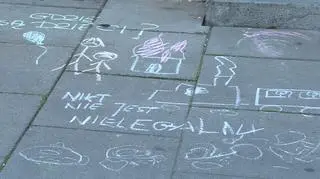 GDZIE
NIKT
NIE JEST
NIELEGALNY